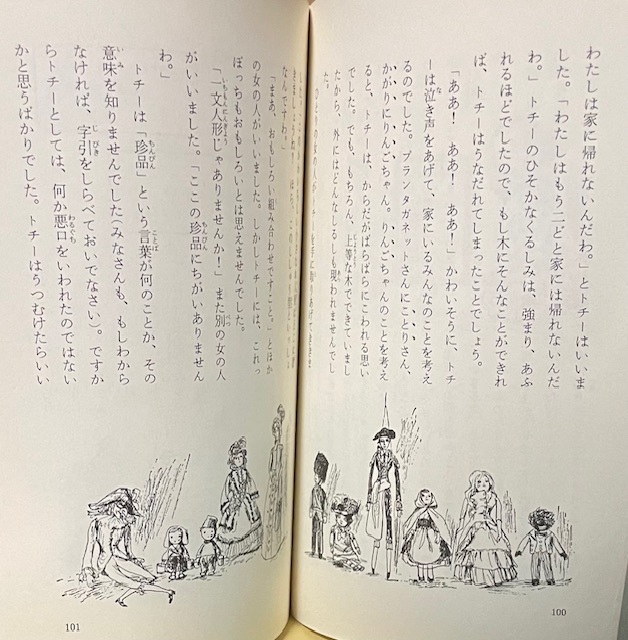 わたしは家に帰れないんだわ。」とトチーはいいま
した。「わたしはもう二どと家には帰れないんだ
わ。」トチーのひそかなくるしみは、強まり、あふ
れるほどでしたので、もし木にそんなことができれ
ば、トチーはうなだれてしまったことでしょう。
「ああ！　ああ！　ああ！」かわいそうに、トチ
ーは泣き声をあげて、家にいるみんなのことを考え
るのでした。プランタガネットさんにことりさん、
かがりにりんごちゃん。りんごちゃんのことを考え
ると、トチーは、からだがばらばらにこわれる思い
でした。でも、もちろん、上等な木でできていまし
たから、外にはどんなしるしも現われませんでし
た。
100
なんですわ。」
「まあ、おもしろい組み合わせですこと。」とほか
の女の人がいいました。しかしトチーには、これっ
ぽっちもおもしろいとは思えませんでした。
「一文人形じゃありませんか！」また別の女の人
がいいました。「ここの珍品にちがいありません
わ。」
トチーは「珍品」という言葉が何のことか、その
意味を知りませんでした（みなさんも、もしわから
なければ、字引をしらべておいでなさい）。ですか
らトチーとしては、何か悪口をいわれたのではない
かと思うばかりでした。トチーはうつむけたらいい
101